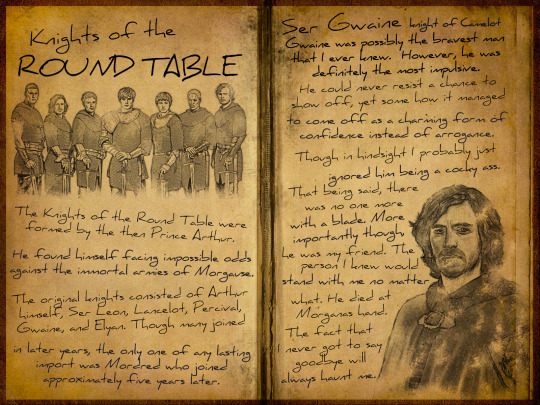 Knights of the
ROUND TABLE
The Knights of the Round Table were
formed by the then Prince Arthur.
He found himself facing impossible odds
against the immortal armies of Morgause.
The original knights consisted of Arthur
himself, Ser Leon, Lancelot, Percival,
Gwaine, and Elyan. Though many joined
in later years, the only one of any lasting
import was Mordred who joined
approximately five years later.
Ser Gwaine knight of Camelot
Gwaine was possibly the bravest man
that I ever knew. However, he was
definitely the most impulsive.
He could never resist a chance to
show off, yet some how it managed
to come off as a charming form of
confidence instead of arrogance.
Though in hindsight I probably just
ignored him being a cocky ass.
That being said, there
was no one more
with a blade. More
importantly though,
he was my friend. The
person I knew would
stand with me no matter
what. He died at
Morganas hand.
The fact that
I never got to say
goodbye will
always haunt me.